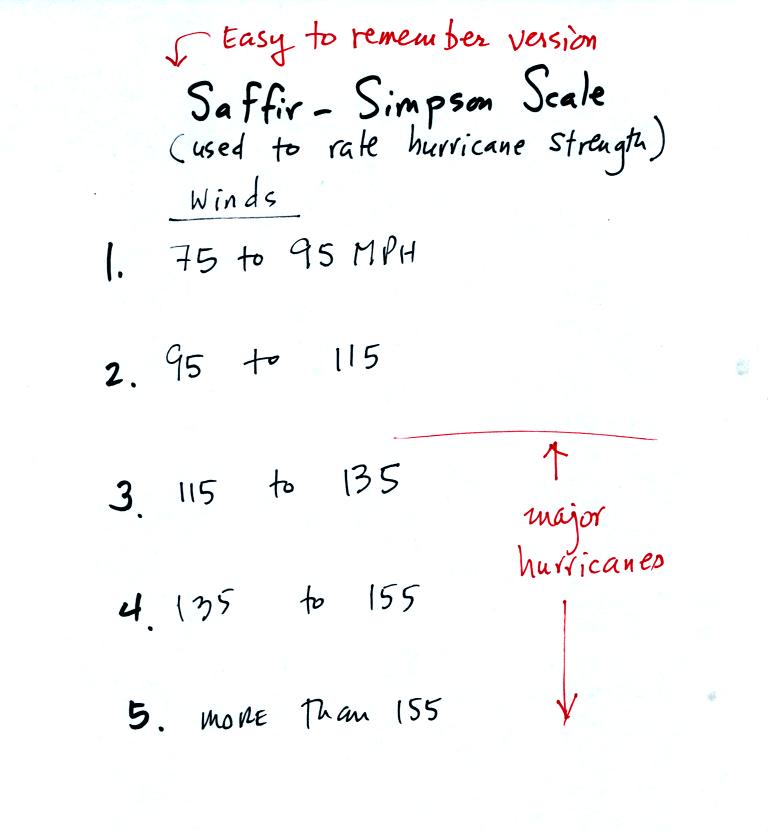 Easy to remember version
Saffir - Simpson Scale
(used to rate hurricane strength)
Winds
1. 75 to 95 MPH
2. 95 to 115
3. 115 to 135
major
hurricanes
4. 135 to 155
5. more than 155